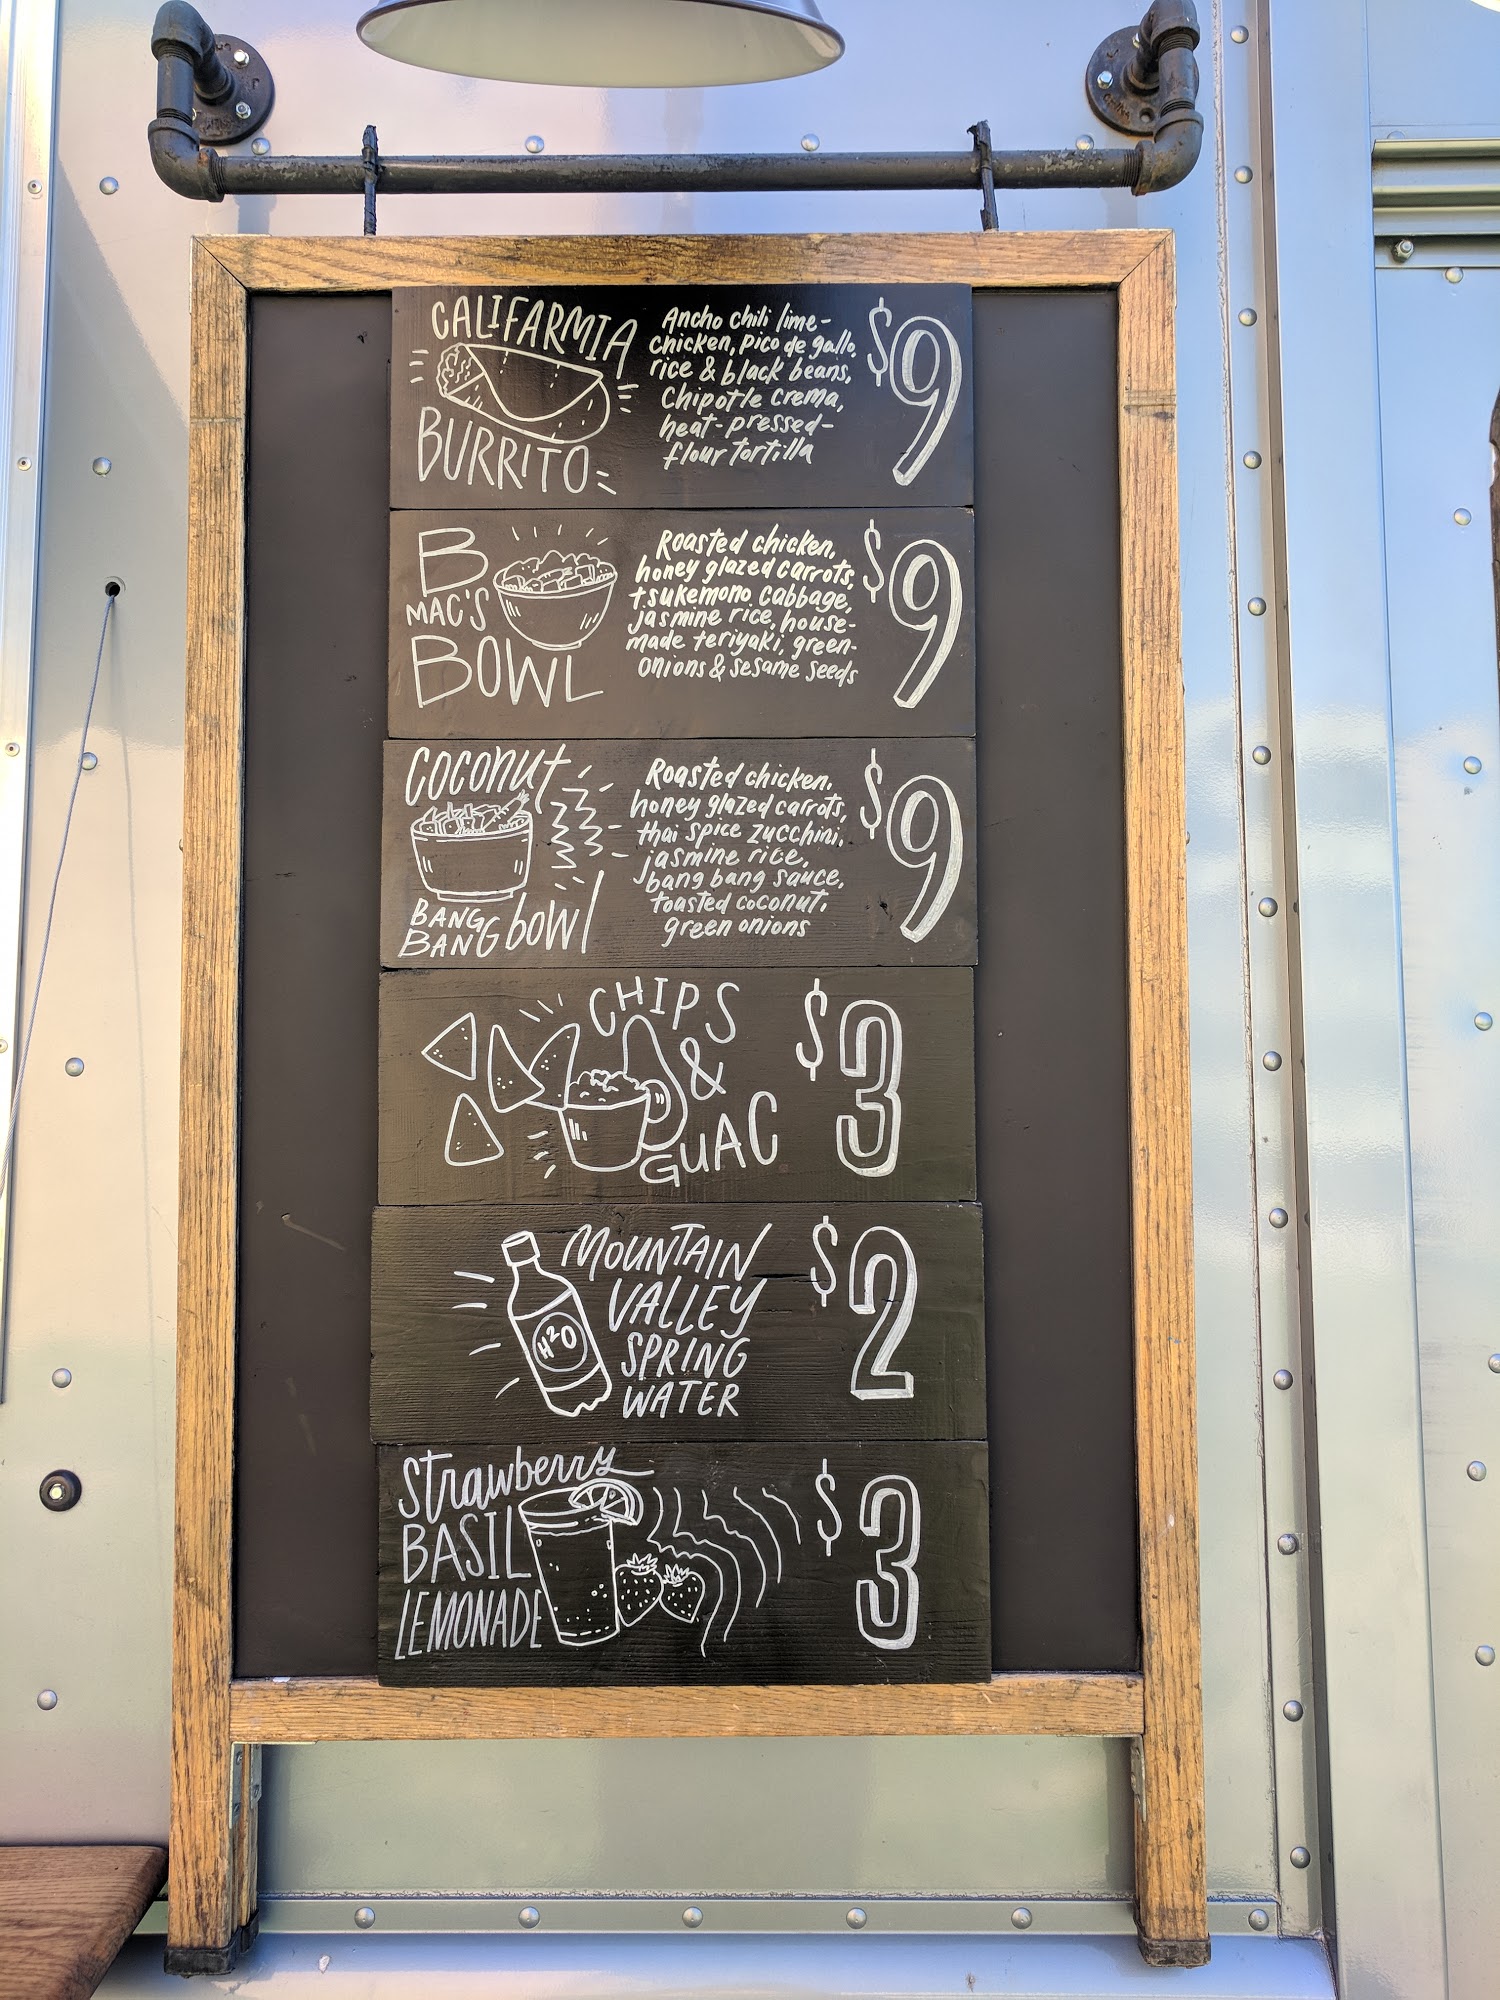 CALIFARMIA
BURRITO
Ancho chili lime-
chicken, pico de gallo,
rice & black beans,
Chipotle crema,
heat-pressed-
flour tortilla
$9
B
MAC'S
BOWL
Roasted chicken,
honey glazed carrots,
tsukemono cabbage,
jasmine rice, house-
made teriyaki, green-
onions & sesame seeds
$9
COCONUT
BANG
BANG bowl
Roasted chicken,
honey glazed carrots,
thai spice zucchini,
jasmine rice,
bang bang sauce,
toasted coconut,
green onions
$9
CHIPS
&
GUAC
$3
H2O
MOUNTAIN
VALLEY
SPRING
WATER
$2
Strawberry
BASIL
LEMONADE
$3